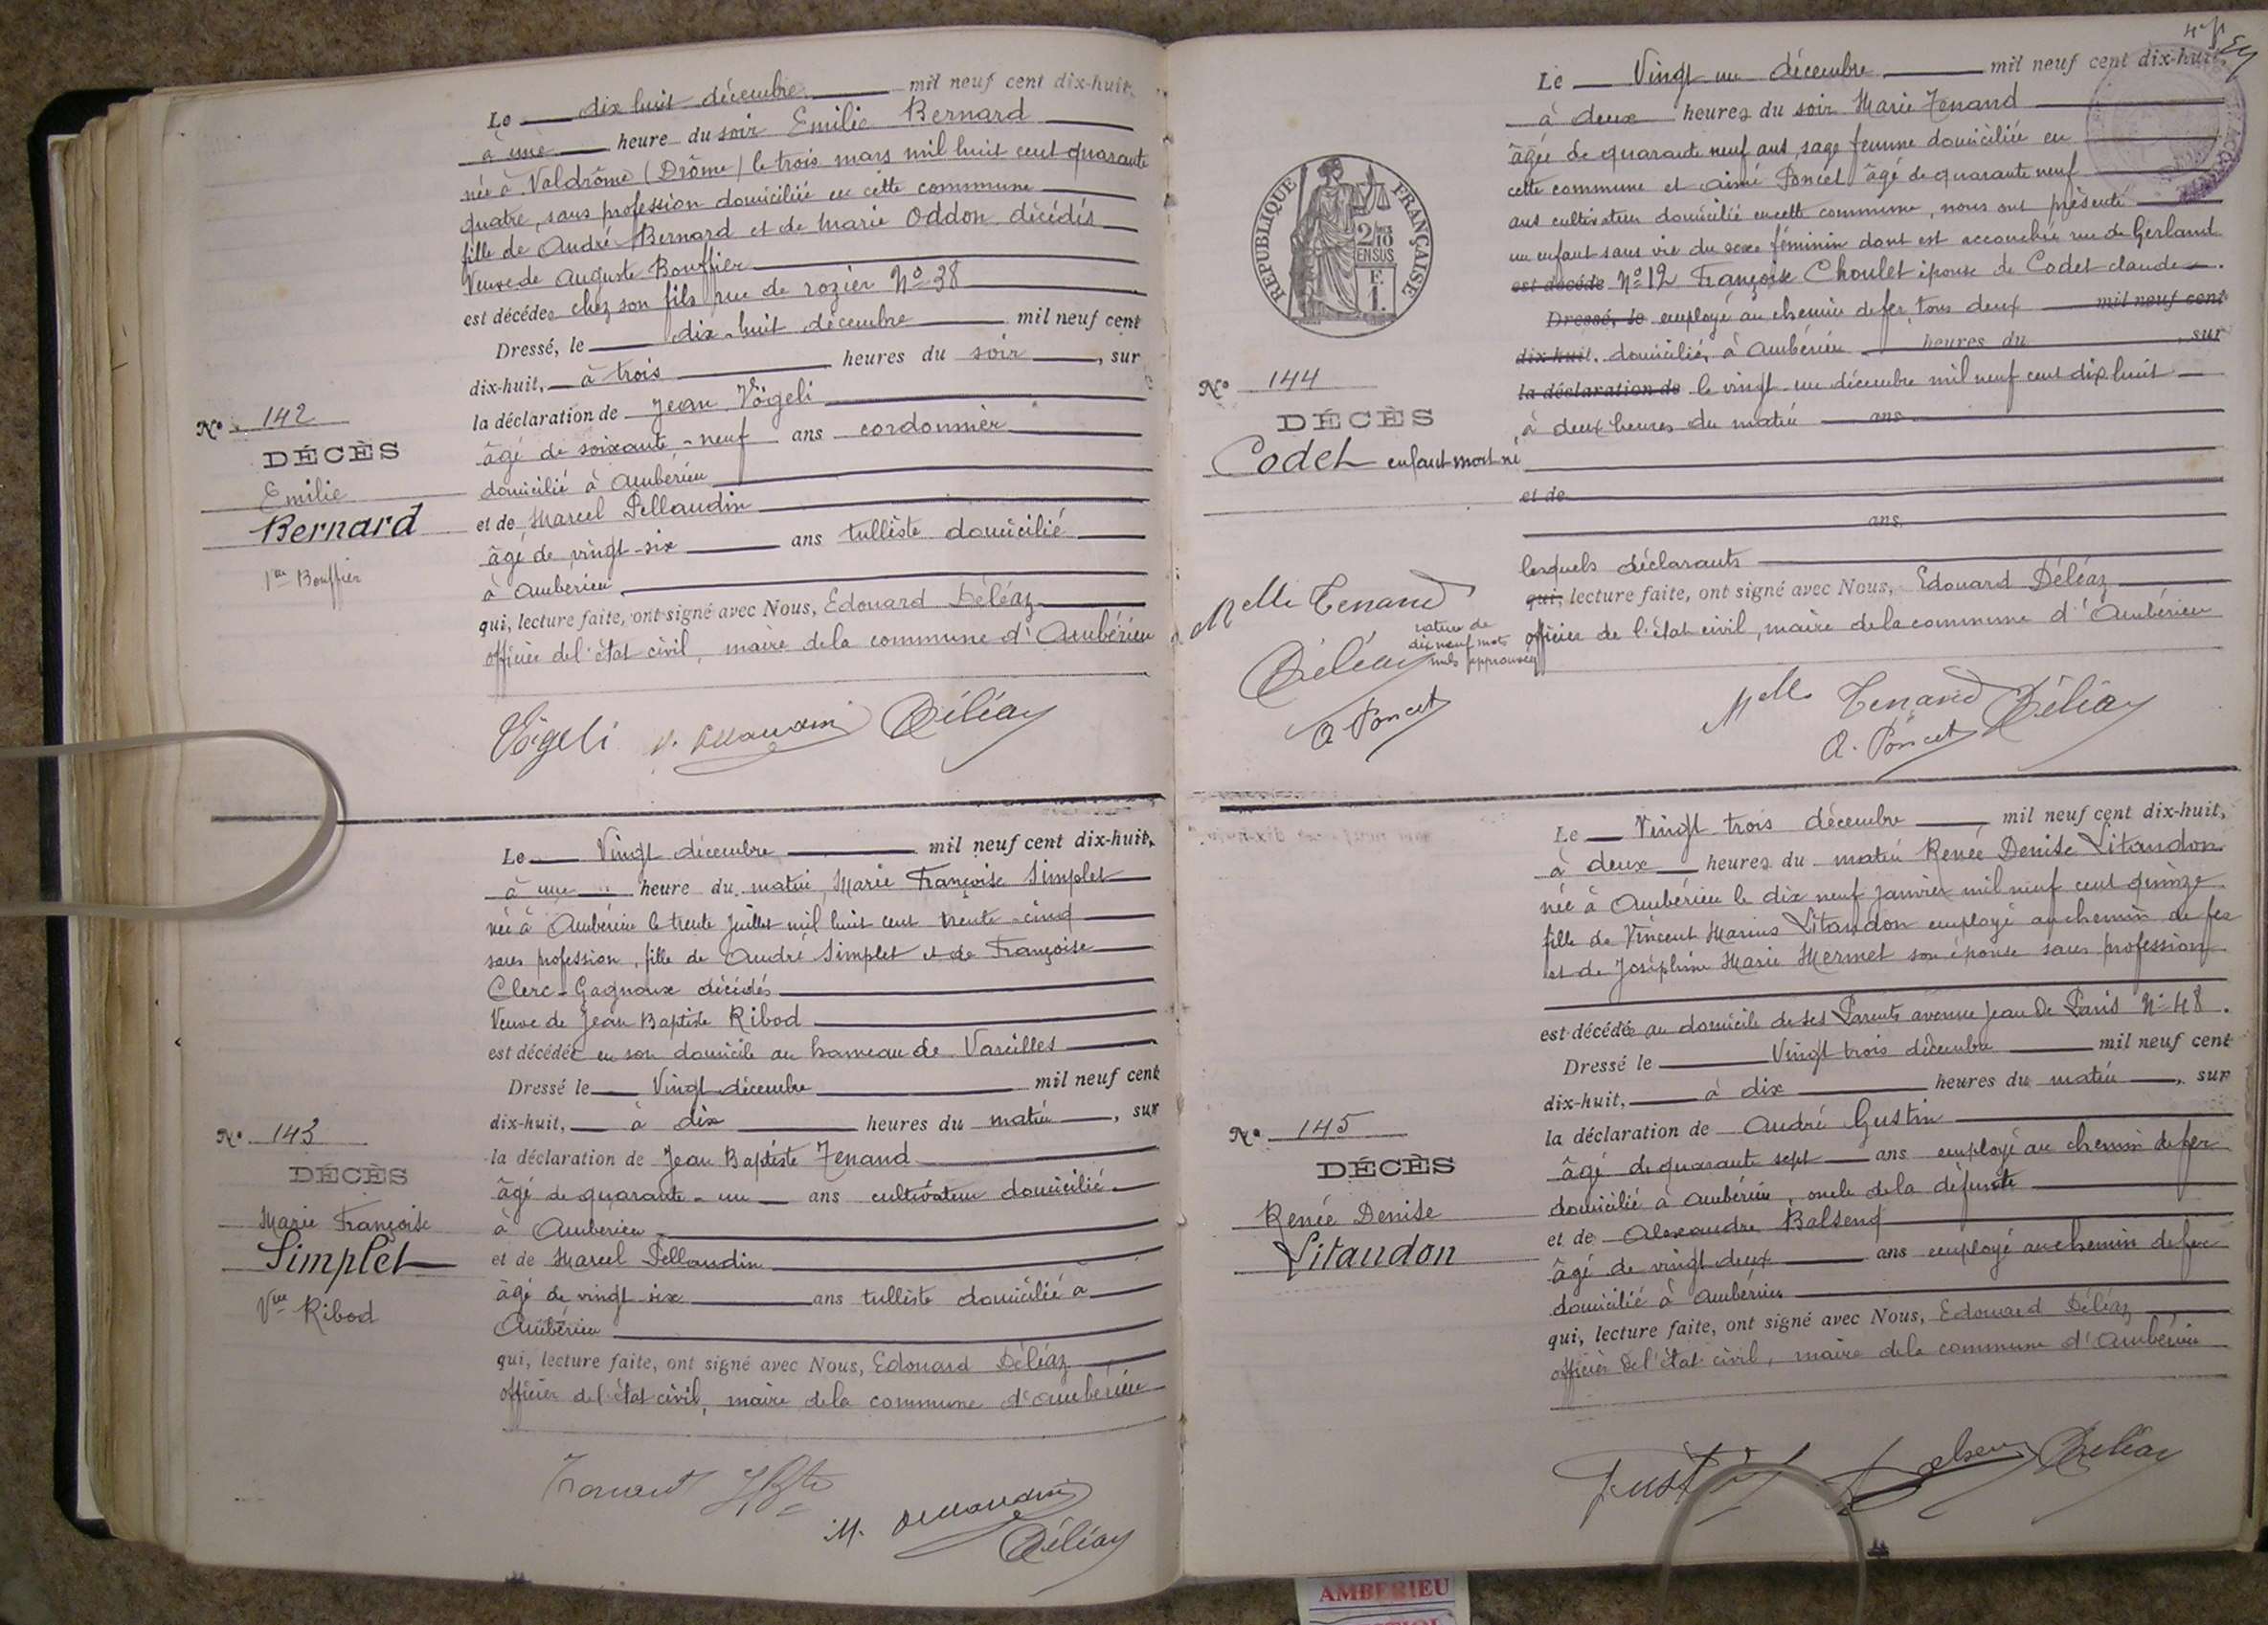 Le dix huit décembre mil neuf cent dix-huit,
à une heure du soir Emilie Bernard
née à Valdrôme (Drôme) le trois mars mil huit cent quarante
quatre, sans profession domiciliée en cette commune
fille de André Bernard et de Marie Oddon décédés
Veuve de Auguste Bouffier
est décédée chez son fils rue de rozier No 38
Dressé, le dix-huit décembre mil neuf cent
dix-huit, à trois heures du soir, sur
la déclaration de Jean Vögeli
âgé de soixante-neuf ans cordonnier
domicilié à Ambérieu
et de Marcel Pellaudin
âgé de vingt-six ans tulliste domicilié
à Amberieu
qui, lecture faite, ont signé avec Nous, Edouard Déléaz
officier de l'état civil, maire de la commune d'Ambérieu
No 142
DÉCÈS
Emilie
Bernard
Vve Bouffier
Vögeli Déléaz
Le Vingt décembre mil neuf cent dix-huit,
à une heure du matin, Marie Françoise Simplet
née à Ambérieu le trente juillet mil huit cent trente-cinq
sans profession, fille de André Simplet et de Françoise
Clerc-Gagnoux décédés
Veuve de Jean Baptiste Ribod
est décédée en son domicile au hameau de Vareilles
Dressé le Vingt décembre mil neuf cent
dix-huit, à dix heures du matin, sur
la déclaration de Jean Baptiste Tenand
âgé de quarante-un ans cultivateur domicilié
à Amberieu
et de Marcel Pellaudin
âgé de vingt six ans tulliste domicilié à
Ambérieu
qui, lecture faite, ont signé avec Nous, Edouard Déléaz
officier de l'état civil, maire de la commune d'Ambérieu
No 143
DÉCÈS
Marie Françoise
Simplet
Vve Ribod
Tenand JBte
M. Pellaudin
Déléaz
Le Vingt un décembre mil neuf cent dix-huit,
à deux heures du soir Marie Tenand
âgée de quarante neuf ans, sage femme domiciliée en
cette commune et aimé Poncet âgé de quarante neuf
ans cultivateur domicilié en cette commune, nous ont présenté
un enfant sans vie du sexe féminin dont est accouchée rue de Gerland
est décédé No 12 Françoise Choulet épouse de Codet claude
Dressé, le employé au chemin de fer, tous deux mil neuf cent
dix-huit, domiciliés à Ambérieu heures du, sur
la déclaration de le vingt-un décembre mil neuf cent dix huit
à deux heures du matin ans
et de
ans,
lesquels déclarants
qui, lecture faite, ont signé avec Nous, Edouard Déléaz
officier de l'état civil, maire de la commune d'Ambérieu
RÉPUBLIQUE FRANÇAISE
2/10 EN SUS
F. 1.
No 144
DÉCÈS
Codet enfant mort né
Melle Tenand
rature de
dix neuf mots
nuls approuvée
Déléaz
A Poncet
Melle Tenand Déléaz
A. Poncet
Le Vingt trois décembre mil neuf cent dix-huit,
à deux heures du matin Renée Denise Litaudon
née à Ambérieu le dix neuf janvier mil neuf cent quinze
fille de Vincent Marius Litaudon employé au chemin de fer
et de Joséphine Marie Mermet son épouse sans profession
est décédée au domicile de ses Parents avenue Jean De Paris No 48.
Dressé le Vingt trois décembre mil neuf cent
dix-huit, à dix heures du matin, sur
la déclaration de André Gustin
âgé de quarante sept ans employé au chemin de fer
domicilié à Ambérieu, oncle de la défunte
et de Alexandre Balsenq
âgé de vingt deux ans employé au chemin de fer
domicilié à Ambérieu
qui, lecture faite, ont signé avec Nous, Edouard Déléaz
officier de l'état civil, maire de la commune d'Ambérieu
No 145
DÉCÈS
Renée Denise
Litaudon
Déléaz
AMBERIEU